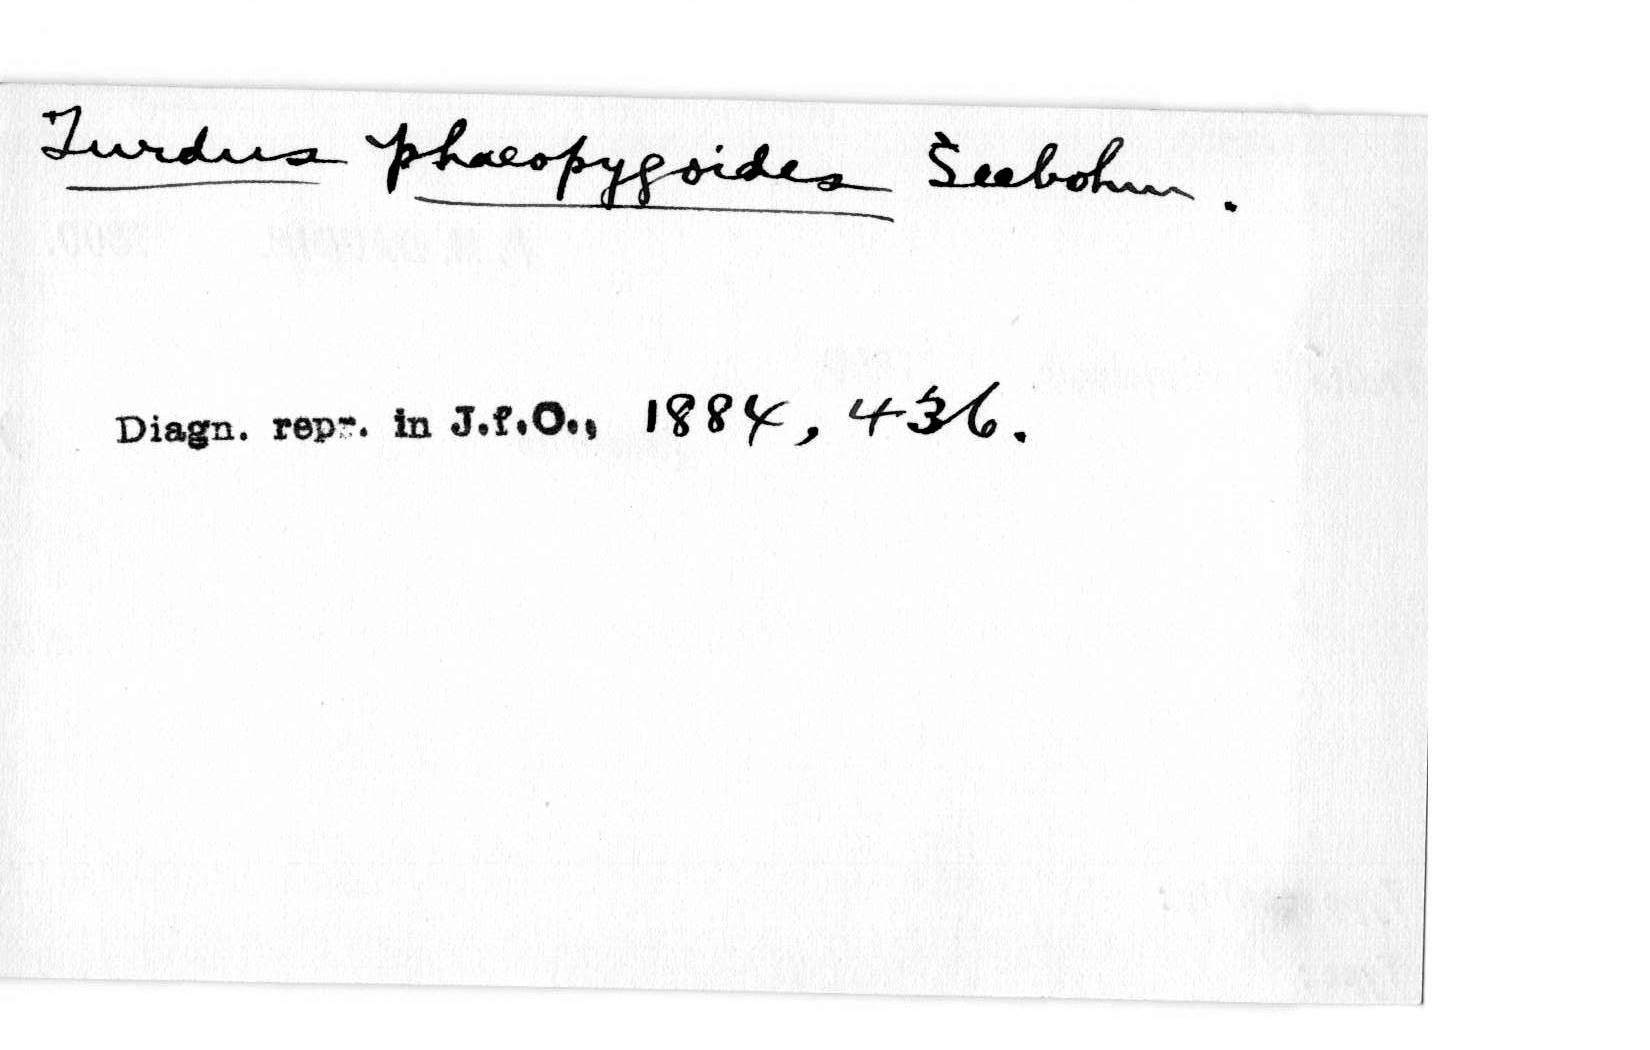 Turdus phaeopygoides Seebohm.
Diagn. repr. in J.f.O., 1884, 436.